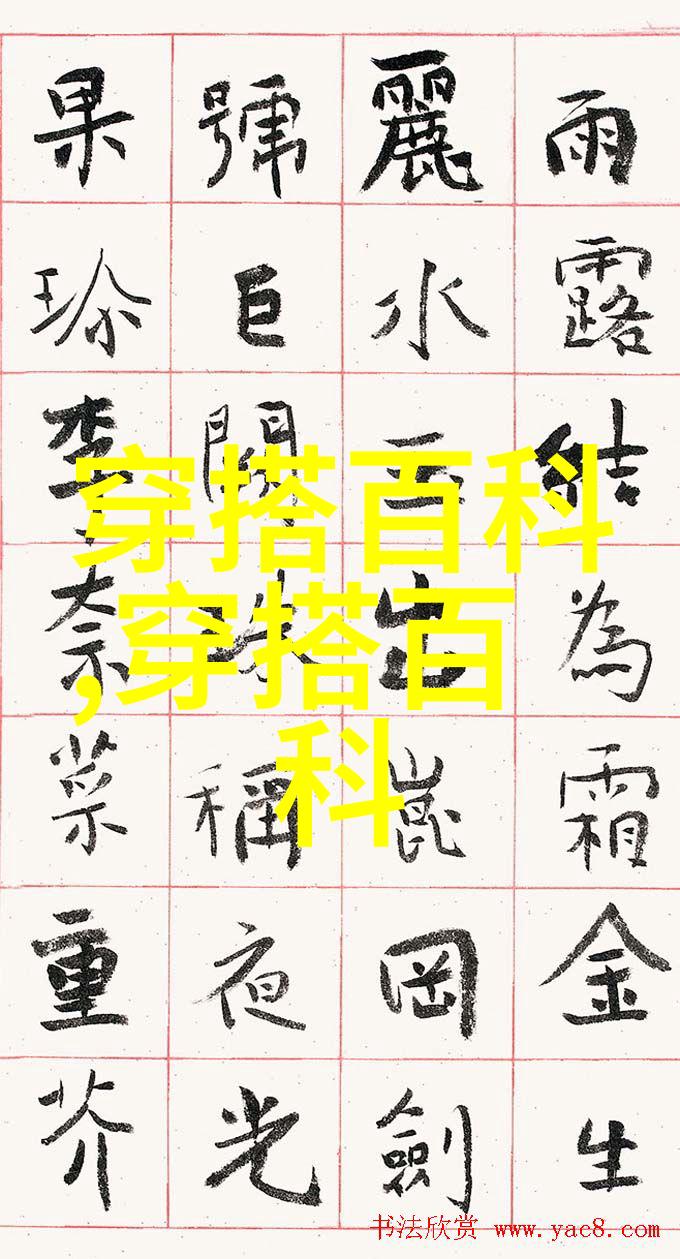 雨露結為霜金生
麗水玉出崑岡劍
號巨闕珠稱夜光
果珎李奈菜重芥
穿搭百科
,穿搭百
科
书法欣赏 www.yac8.com